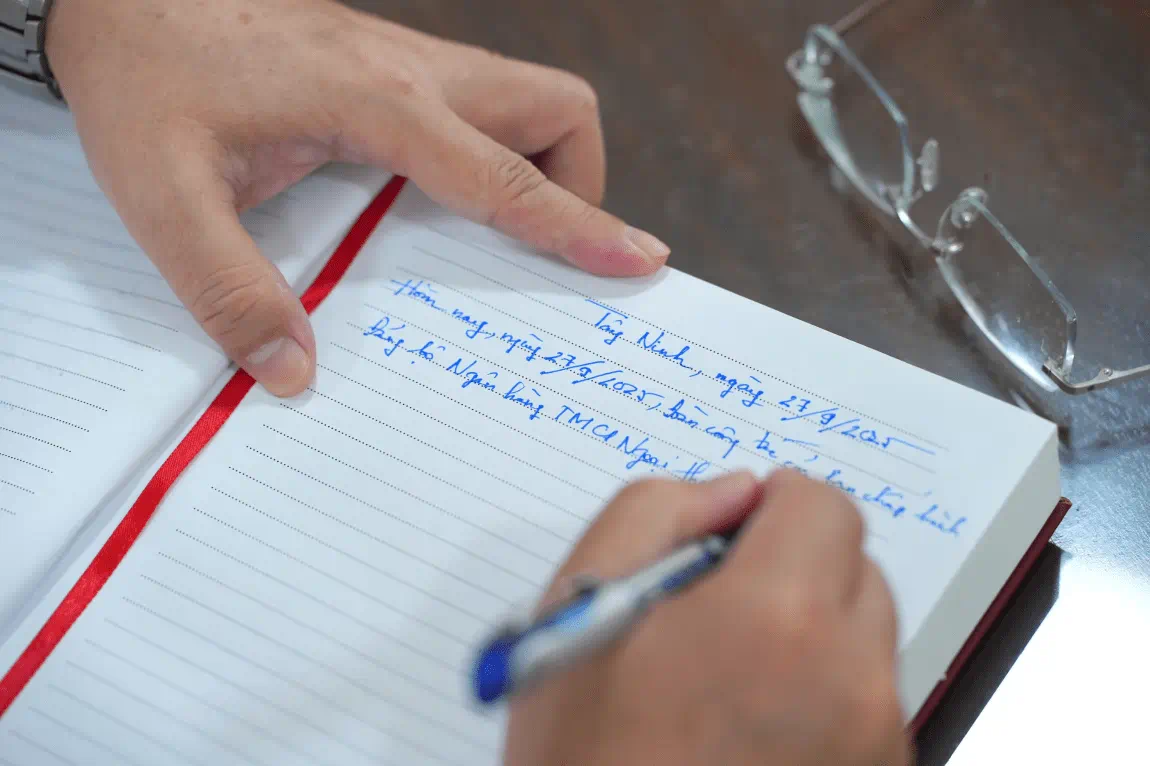 Tây Ninh, ngày 27/9/2025
Hôm nay, ngày 27/9/2025, Đoàn công tác của Ban chấp hành
Đảng bộ Ngân hàng TMCP Ngoại th